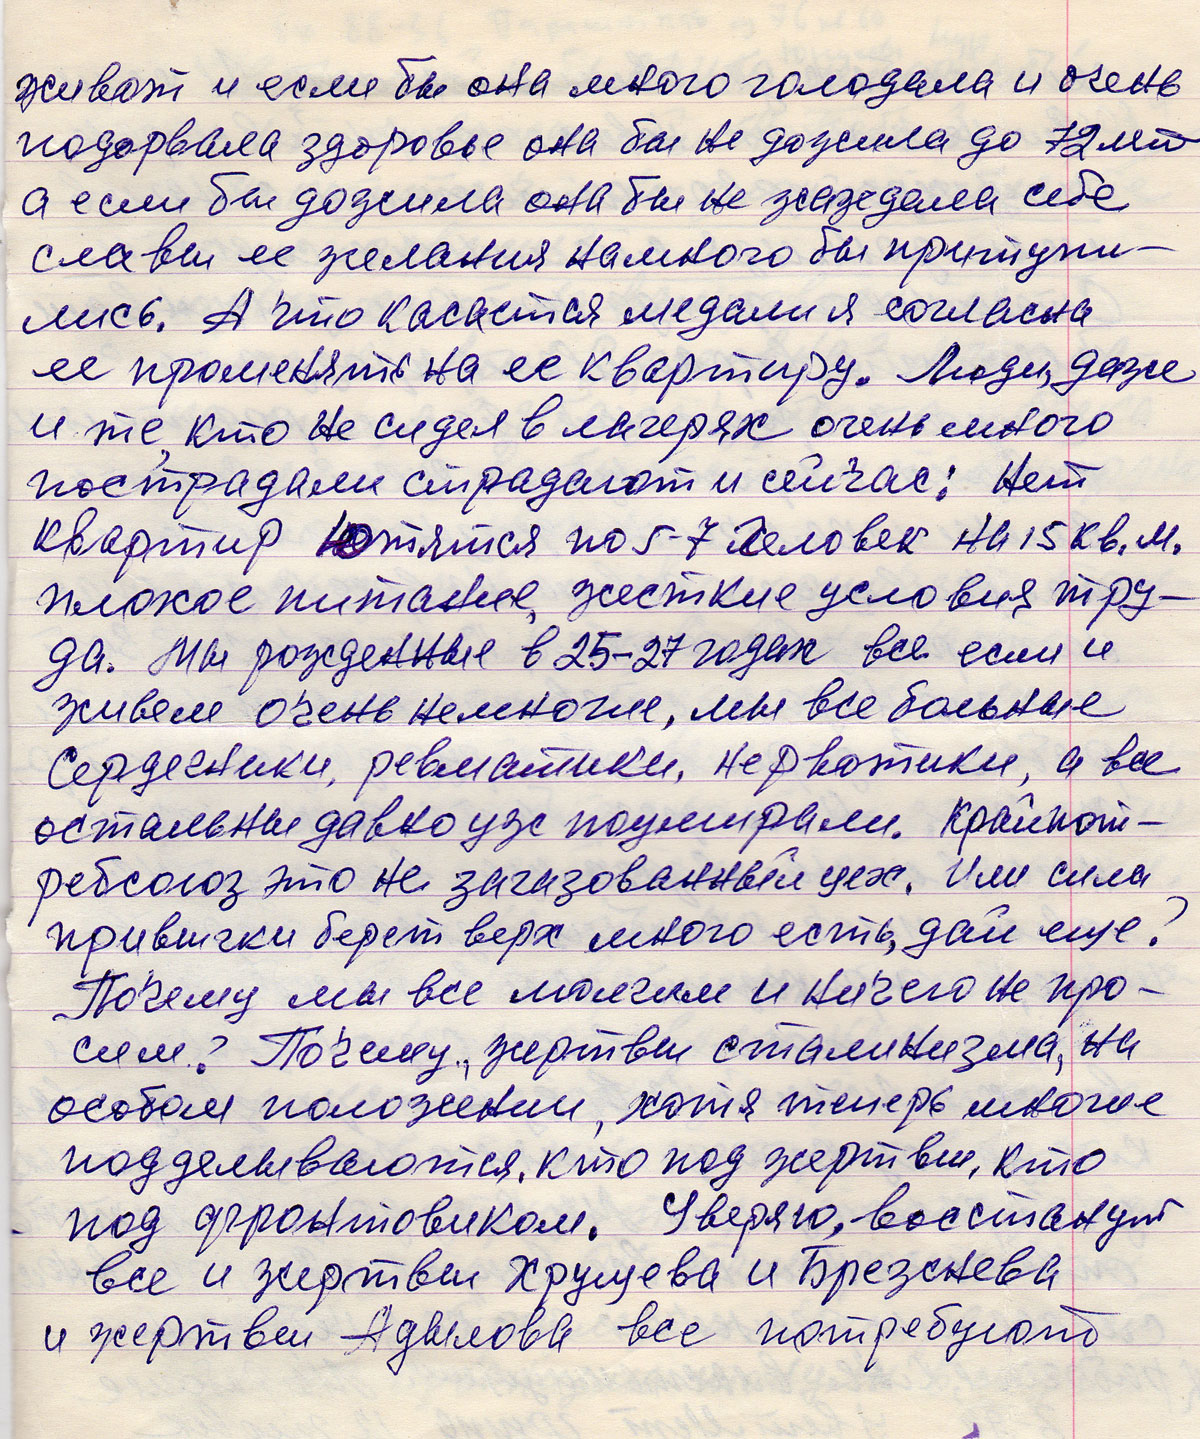 живот и если бы она много голодала и очень
подорвала здоровье она бы не дожила до 72 лет
а если бы дожила она бы не жаждала себе
славы ее желания намного бы притупи-
лись. А что касается медали я согласна
ее променять на ее квартиру. Люди, даже
и те, кто не сидел в лагерях очень много
пострадали страдают и сейчас: Нет
квартир ютятся по 5-7 человек на 15 кв. м.
плохое питание, жесткие условия тру-
да. Мы рожденные в 25-27 годах все если и
живем очень немногие, мы все больные
сердечники, ревматики, нервотики, а все
остальны давно уже поумирали. Крайпот-
ребсоюз это не загазованный цех. Или сила
привычки берет верх много есть, дай еще?
Почему мы все молчим и ничего не про-
сим? Почему „жертвы сталинизма„ на
особом положении, хотя теперь многие
подделываются, кто под жертвы, кто
под фронтовиком. Уверяю, восстанут
все и жертвы Хрущева и Брежнева
и жертвы Адылова все потребуют